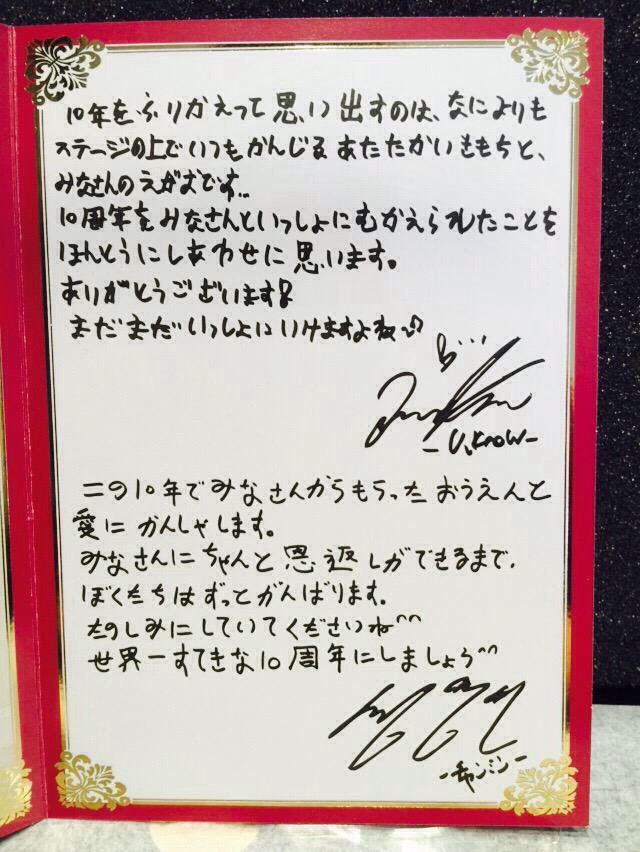 10年をふりかえって思い出すのは、なによりも
ステージの上でいつもかんじるあたたかいきもちと、
みなさんのえがおです...
10周年をみなさんといっしょにむかえられたことを
ほんとうにしあわせに思います。
ありがとうございます!
まだまだいっしょにいけますよね♡
- U.Know -
この10年でみなさんからもらったおうえんと
愛にかんしゃします。
みなさんにちゃんと恩返しができるまで、
ぼくたちはずっとがんばります。
たのしみにしていてくださいね^^
世界一すてきな10周年にしましょう^^
-チャンミン-